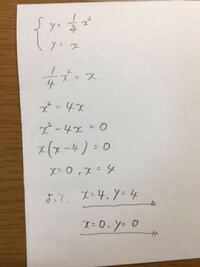 { y = 1/4 x²
y = x
1/4 x² = x.
x² = 4x.
x² - 4x = 0
x(x-4) = 0
x=0, x=4
よって, x=4, y=4
x=0, y=0